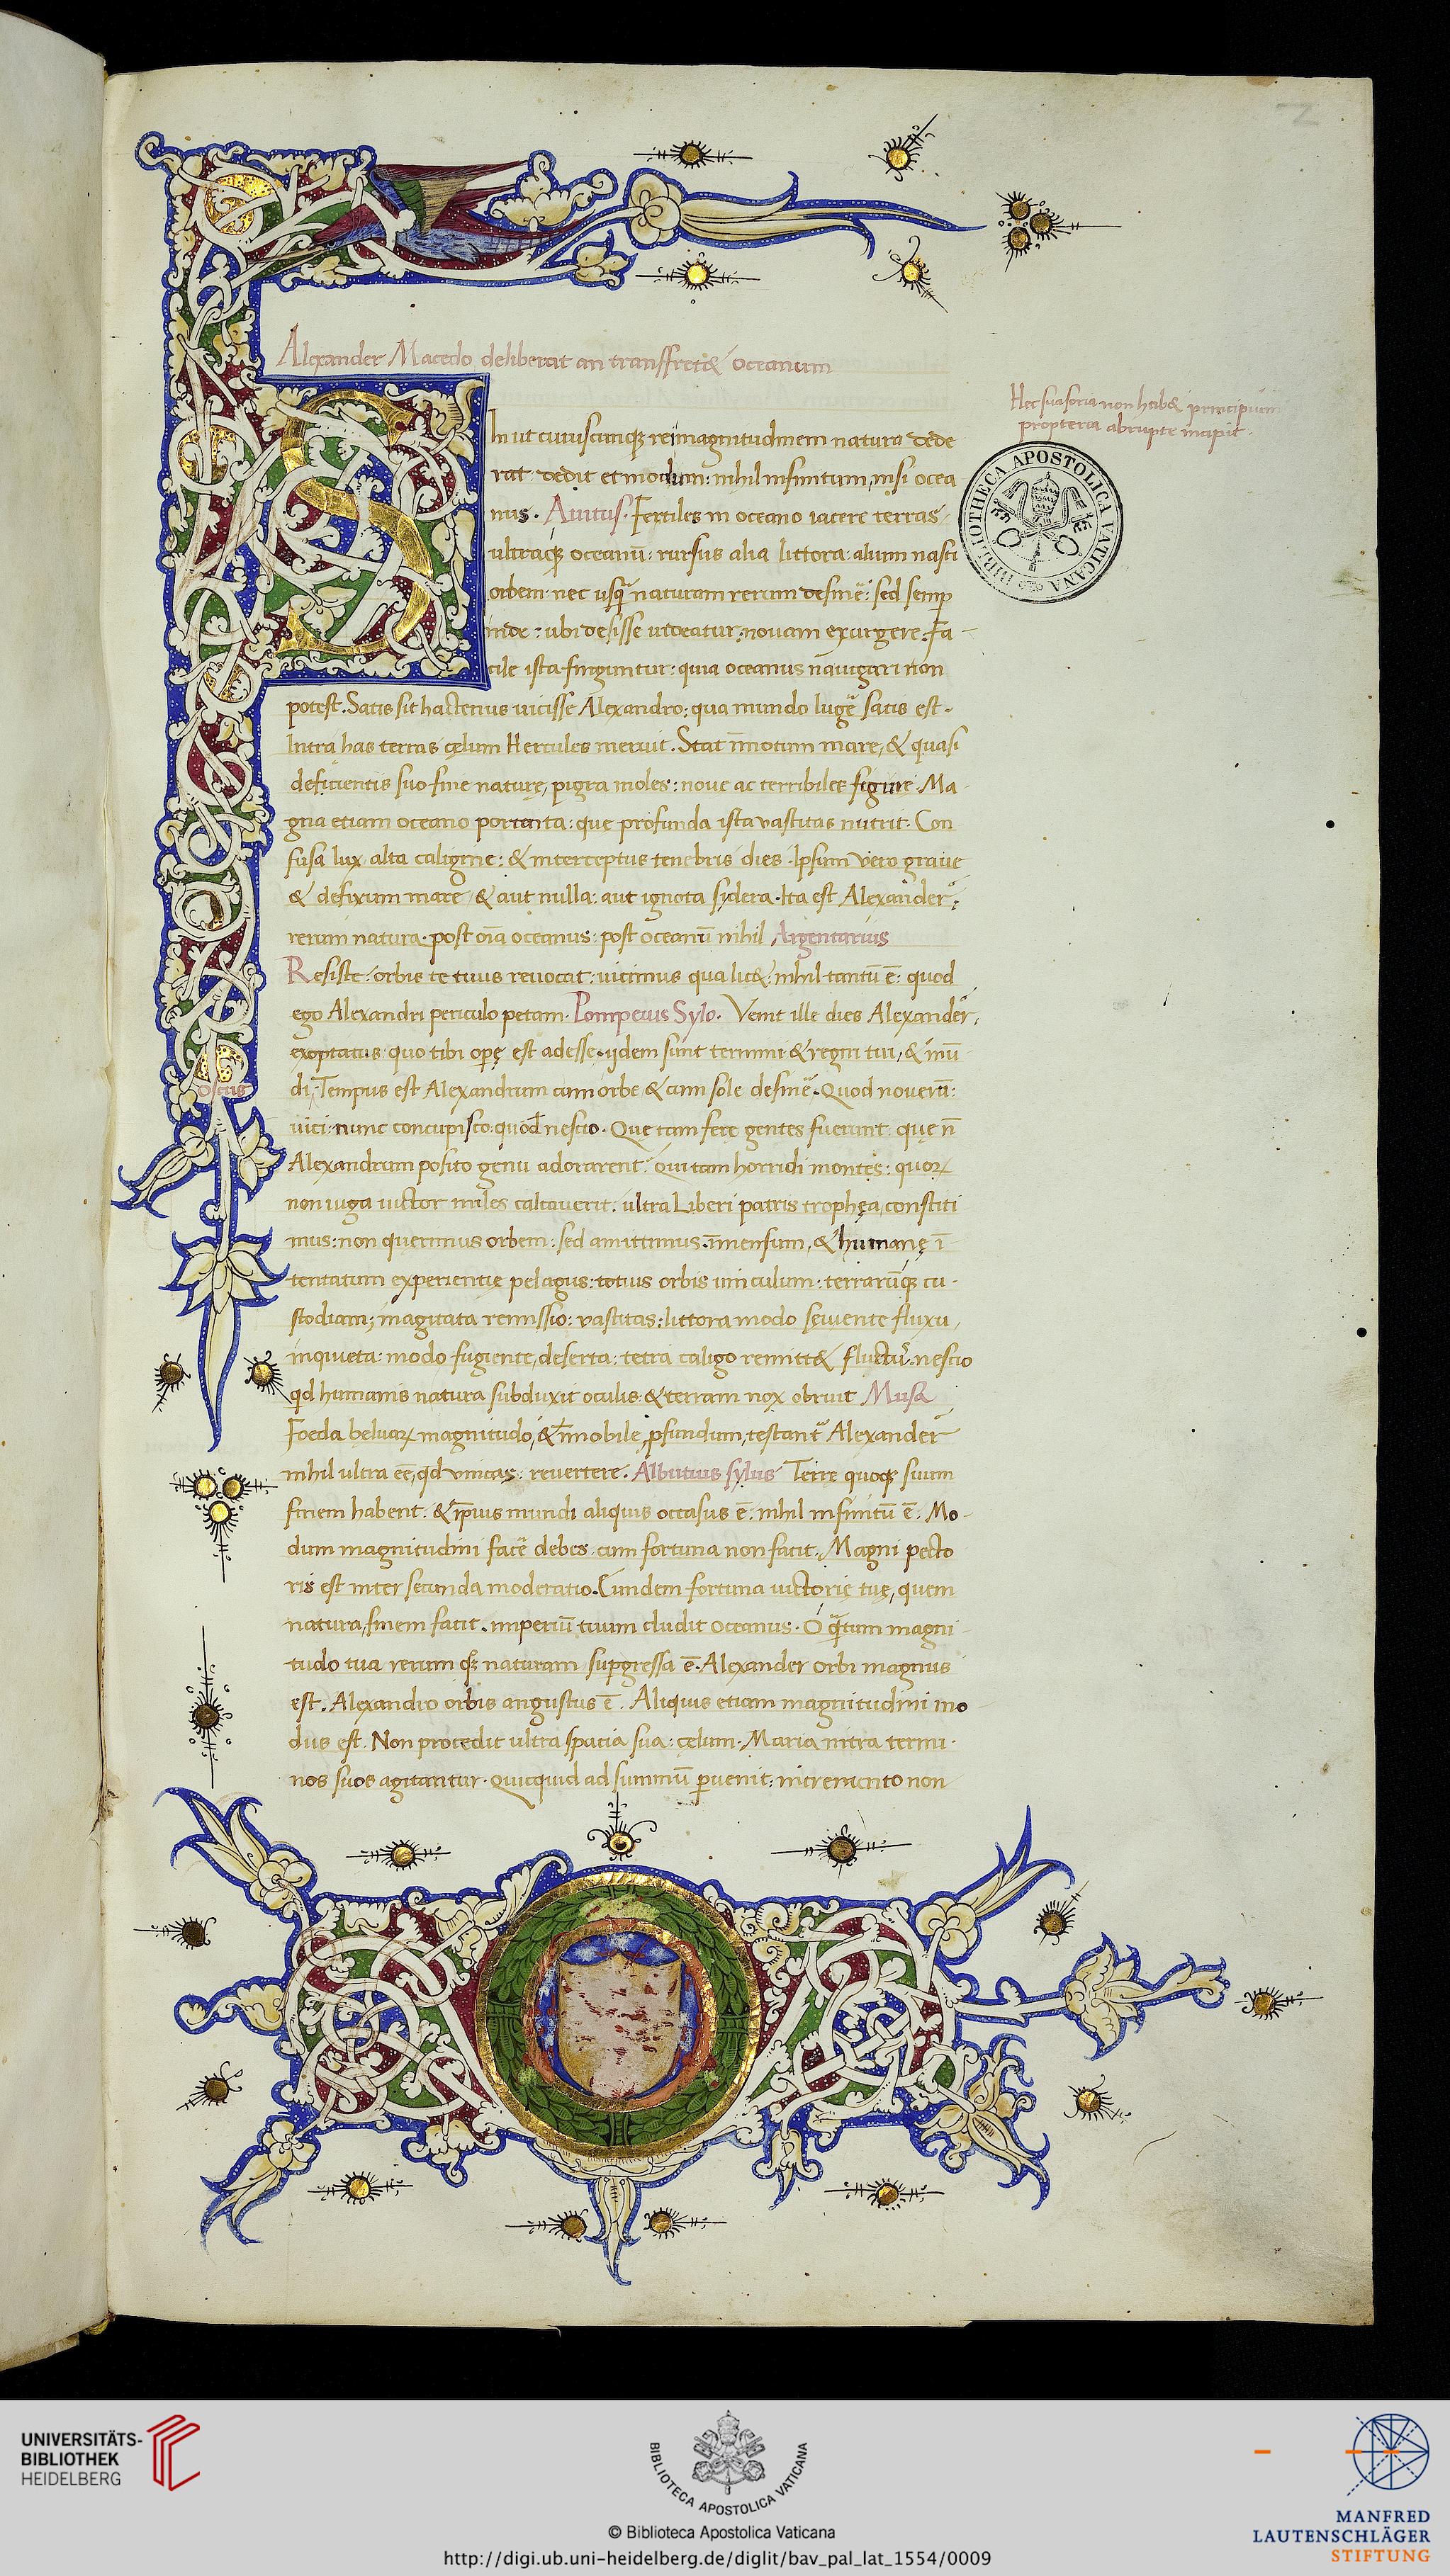 2
Alexander Macedo deliberat an transfret& oceanum
Hec suasoria non hab& principium
propterea abrupte incipit.
S
In ut cuiuscunqꝫ rei magnitudinem natura dede
rat dedit et modum: nihil infinitum, nisi ocea
nus. Auitus. Fertiles in oceano iacere terras
ultraqꝫ oceanū: rursus alia littora: alium nasci
orbem: nec usq̄ naturam rerum desinē: sed semp
inde: ubi desisse uideatur: nouam exurgere. Fa
cile ista finguntur: quia oceanus nauigari non
potest. Satis sit hactenus uicisse Alexandro: qua mundo lugē satis est.
Intra has terras cęlum Hercules meruit. Stat īmotum mare, & quasi
deficientis suo fine naturę, pigra moles: noue ac terribiles figure. Ma
gna etiam oceano portenta: que profunda ista vastitas nutrit. Con
fusa lux alta caligine: & interceptus tenebris dies. Ipsum vero graue
& defixum mare & aut nulla: aut ignota sydera. Ita est Alexander
rerum natura. post oīa oceanus: post oceanū nihil Argentarius
Resiste. orbis te tuus reuocat: uicimus qua lic&: nihil tantū ē: quod
ego Alexandri periculo petam. Pompeius Sylo. Venit ille dies Alexander,
exoptatus quo tibi opę est adesse. ijdem sunt termini & regni tui, & mū
di. Tempus est Alexandrum cum orbe & cum sole desinē. Quod nouerā:
Oscus
uici: nunc concupisco quod nescio. Que tam fere gentes fuerunt que n̄
Alexandrum posito genu adorarent. Qui tam horridi montes: quoꝝ
non iuga uictor miles calcauerit. ultra Liberi patris trophęa constiti
mus: non querimus orbem: sed amittimus. īmensum, & humanę ī
tentatum experientię pelagus: totius orbis uinculum: terrarūqꝫ cu
stodiam; inagitata remissio: vastitas: littora modo sęuiente fluxu,
inquieta: modo fugiente, deserta: tetra caligo remitt& fluctꝰ. nescio
qd humanis natura subduxit oculis & terram nox obruit Musa
Foeda beluaꝝ magnitudo, & īmobile pfundum, testantᷣ Alexander
nihil ultra eē, qd vincas. reuertere. Albutius sylus Terre quoqꝫ suum
finem habent. & ipsius mundi aliquis occasus ē. nihil infinitū ē. Mo
dum magnitudini facē debes cum fortuna non facit. Magni pecto
ris est inter secunda moderatio. Eundem fortuna uictorię tuę, quem
natura, finem facit. imperiū tuum cludit oceanus. O q̄tum magni
tudo tua rerum qꝫ naturam supgressa ē. Alexander orbi magnus
est. Alexandro orbis angustus ē. Aliquis etiam magnitudini mo
dus est. Non procedit ultra spacia sua: cęlum. Maria intra termi
nos suos agitantur. quicquid ad summū peruenit: incremento non
BIBLIOTHECA APOSTOLICA VATICANA
UNIVERSITÄTS-
BIBLIOTHEK
HEIDELBERG
BIBLIOTECA APOSTOLICA VATICANA
© Biblioteca Apostolica Vaticana
http://digi.ub.uni-heidelberg.de/diglit/bav_pal_lat_1554/0009
MANFRED
LAUTENSCHLÄGER
STIFTUNG